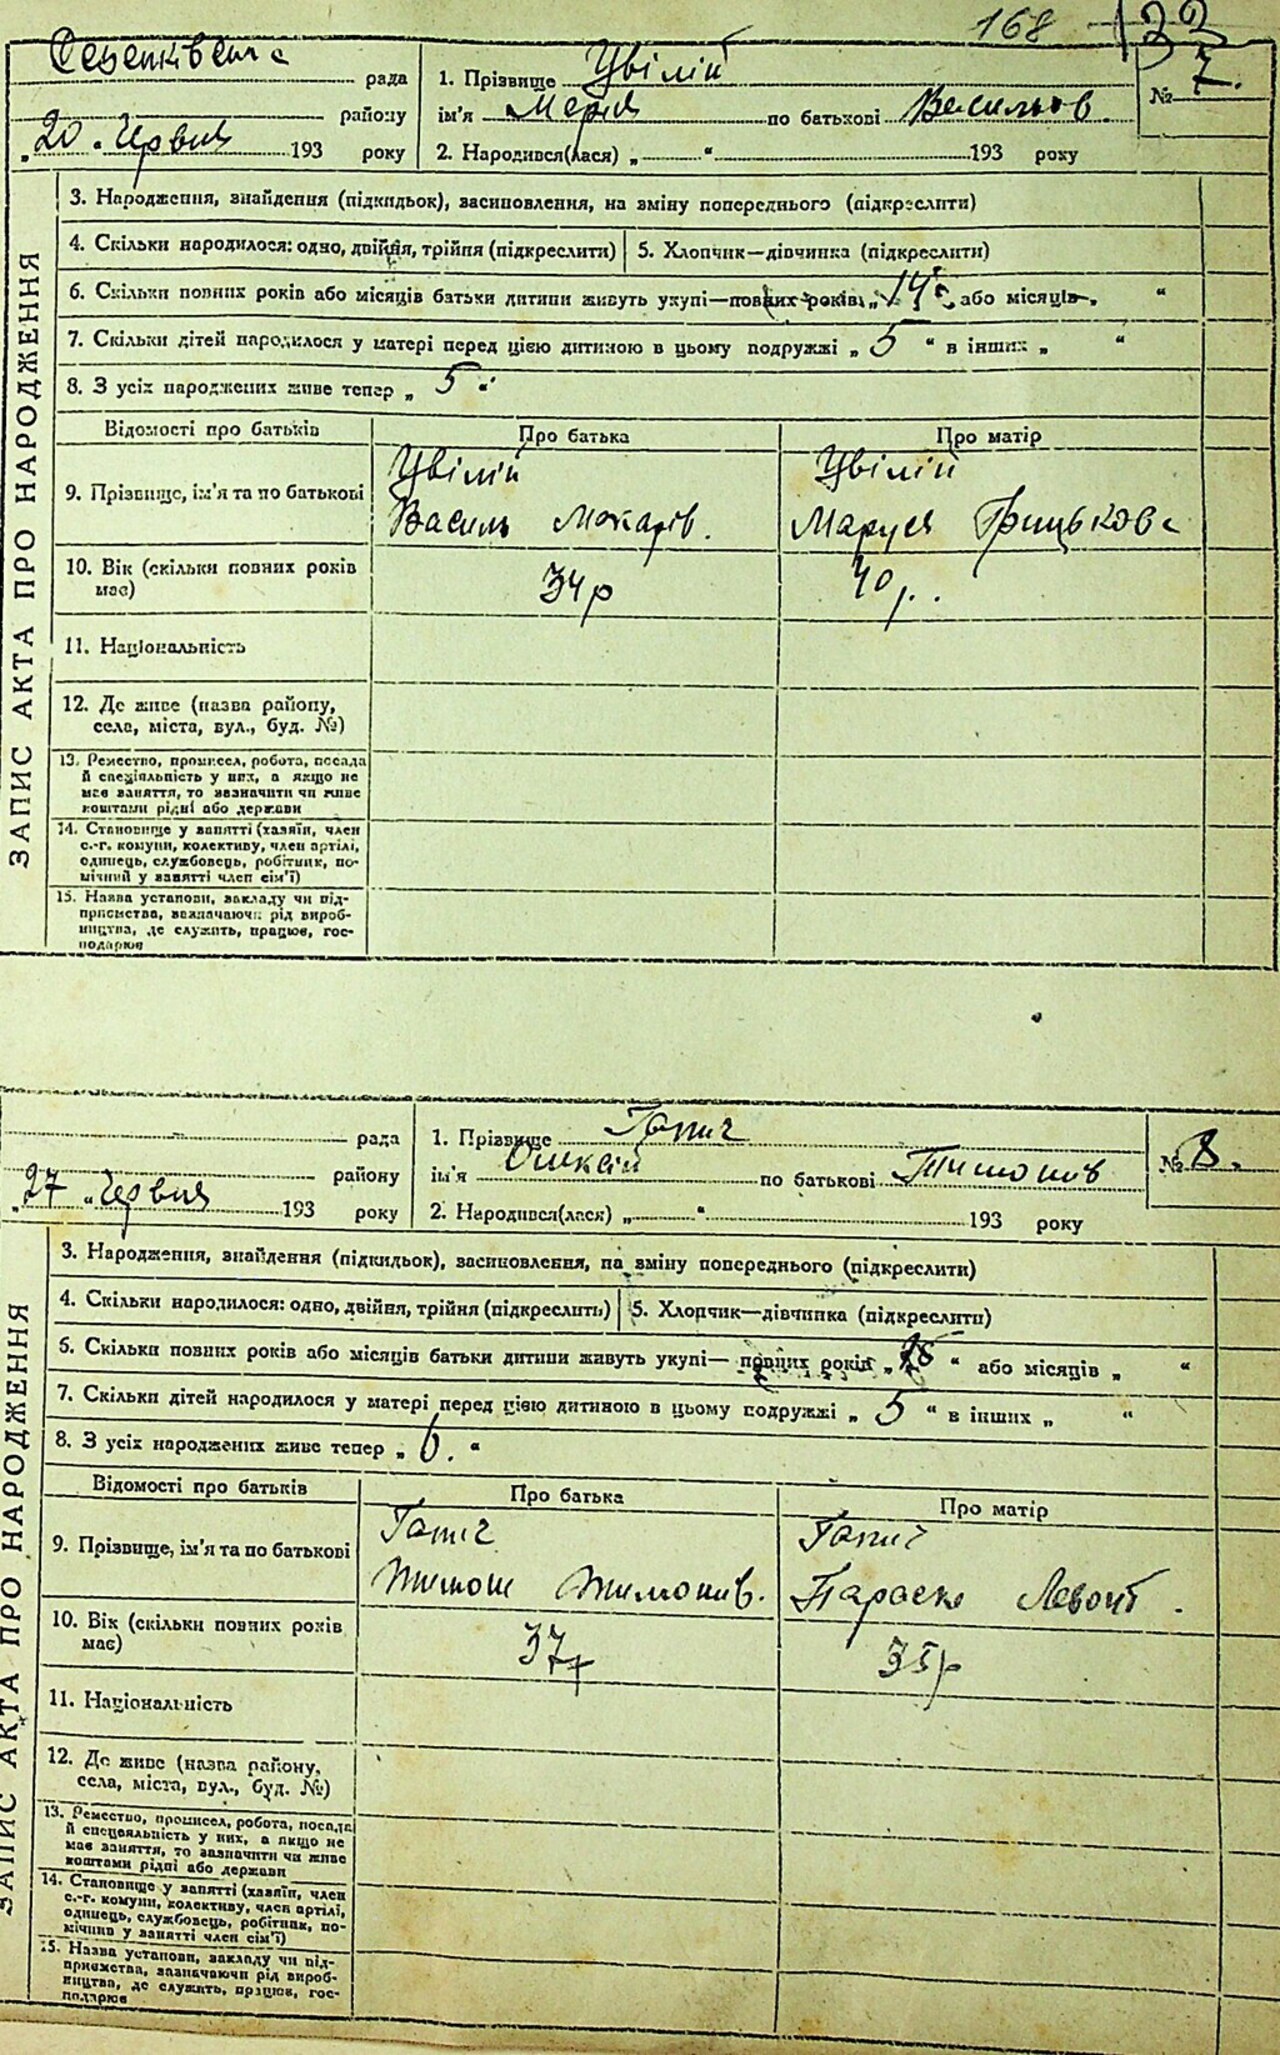 168 133
рада 1. Прізвище Цвілій № 7.
району ім'я Мария по батькові Васильов.
„20“ Червня 193 року 2. Народився(лася) „ “ 193 року
ЗАПИС АКТА ПРО НАРОДЖЕННЯ
3. Народження, знайдення (підкидьок), засиновлення, на зміну попереднього (підкреслити)
4. Скільки народилося: одно, двійня, трійня (підкреслити) 5. Хлопчик—дівчинка (підкреслити)
6. Скільки повних років або місяців батьки дитини живуть укупі—повних років „14“ або місяців „ “
7. Скільки дітей народилося у матері перед цією дитиною в цьому подружжі „ 5 “ в інших „ “
8. З усіх народжених живе тепер „ 5 “
Відомості про батьків Про батька Про матір
9. Прізвище, ім'я та по батькові Цвілій Цвілій
Василь Макарів. Маруся Грицькова
10. Вік (скільки повних років 34р 40р.
має)
11. Національність
12. Де живе (назва району,
села, міста, вул., буд. №)
13. Ремество, промисел, робота, посада
й спеціяльність у них, а якщо не
має заняття, то зазначити чи живе
коштами рідні або держави
14. Становище у занятті (хазяїн, член
с.-г. комуни, колективу, член артілі,
одинець, службовець, робітник, по-
мічний у занятті член сім'ї)
15. Назва установи, закладу чи під-
приємства, зазначаючи рід вироб-
ництва, де служить, працює, гос-
подарює
рада 1. Прізвище Гапич № 8.
району ім'я Олексій по батькові Тимошів
„27“ Червня 193 року 2. Народився(лася) „ “ 193 року
ЗАПИС АКТА ПРО НАРОДЖЕННЯ
3. Народження, знайдення (підкидьок), засиновлення, на зміну попереднього (підкреслити)
4. Скільки народилося: одно, двійня, трійня (підкреслить) 5. Хлопчик—дівчинка (підкреслити)
6. Скільки повних років або місяців батьки дитини живуть укупі— повних років „ “ або місяців „ “
7. Скільки дітей народилося у матері перед цією дитиною в цьому подружжі „ 5 “ в інших „ “
8. З усіх народжених живе тепер „ 6. “
Відомості про батьків Про батька Про матір
9. Прізвище, ім'я та по батькові Гапич Гапич
Тимош Тимошів. Параска Левонт.
10. Вік (скільки повних років 37р 35р
має)
11. Національність
12. Де живе (назва району,
села, міста, вул., буд. №)
13. Ремество, промисел, робота, посада
й спеціяльність у них, а якщо не
має заняття, то зазначити чи живе
коштами рідні або держави
14. Становище у занятті (хазяїн, член
с.-г. комуни, колективу, член артілі,
одинець, службовець, робітник, по-
мічний у занятті член сім'ї)
15. Назва установи, закладу чи під-
приємства, зазначаючи рід вироб-
ництва, де служить, працює, гос-
подарює